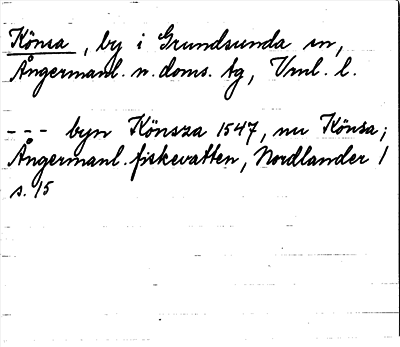 Könsa, by i Grundsunda sn,
Ångermanl. n. doms. tg, Vnl. l.
--- byn Könsza 1547, nu Könsa;
Ångermanl. fiskevatten, Nordlander 1
s. 15